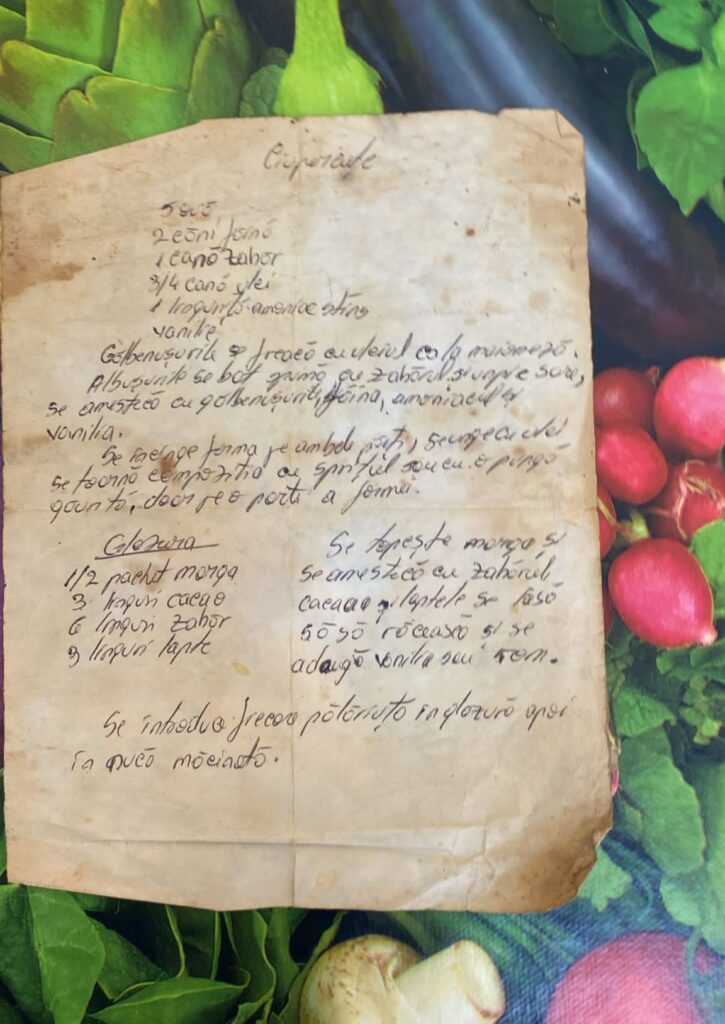 Ciupercuțe
5 ouă
2 căni făină
1 cană zahăr
3/4 cană ulei
1 linguriță amoniac stins
vanilie
Gălbenușurile se freacă cu uleiul ca la maioneză.
Albușurile se bat spumă cu zahărul și un pic sare,
se amestică cu gălbenușurile, făina, amoniacul și
vanilia.
Se încinge forma pe ambele părți, se unge cu ulei
se toarnă compoziția cu sprițul sau cu o pungă
găurită, doar pe o parte a formei.
Glazura
1/2 pachet marga
3 linguri cacao
6 linguri zahăr
3 linguri lapte
Se topește marga și
se amestică cu zahărul,
cacaao și laptele se lasă
să să răcească și se
adaugă vanilie sau rom.
Se introduce fiecare pălăriuță în glazură apoi
în nucă măcinată.